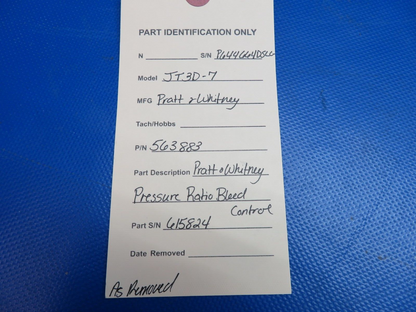 PART IDENTIFICATION ONLY
N S/N P644664DSCC
Model JT3D-7
MFG Pratt & Whitney
Tach/Hobbs
P/N 563883
Part Description Pratt & Whitney
Pressure Ratio Bleed
Control
Part S/N 615824
Date Removed
As Removed